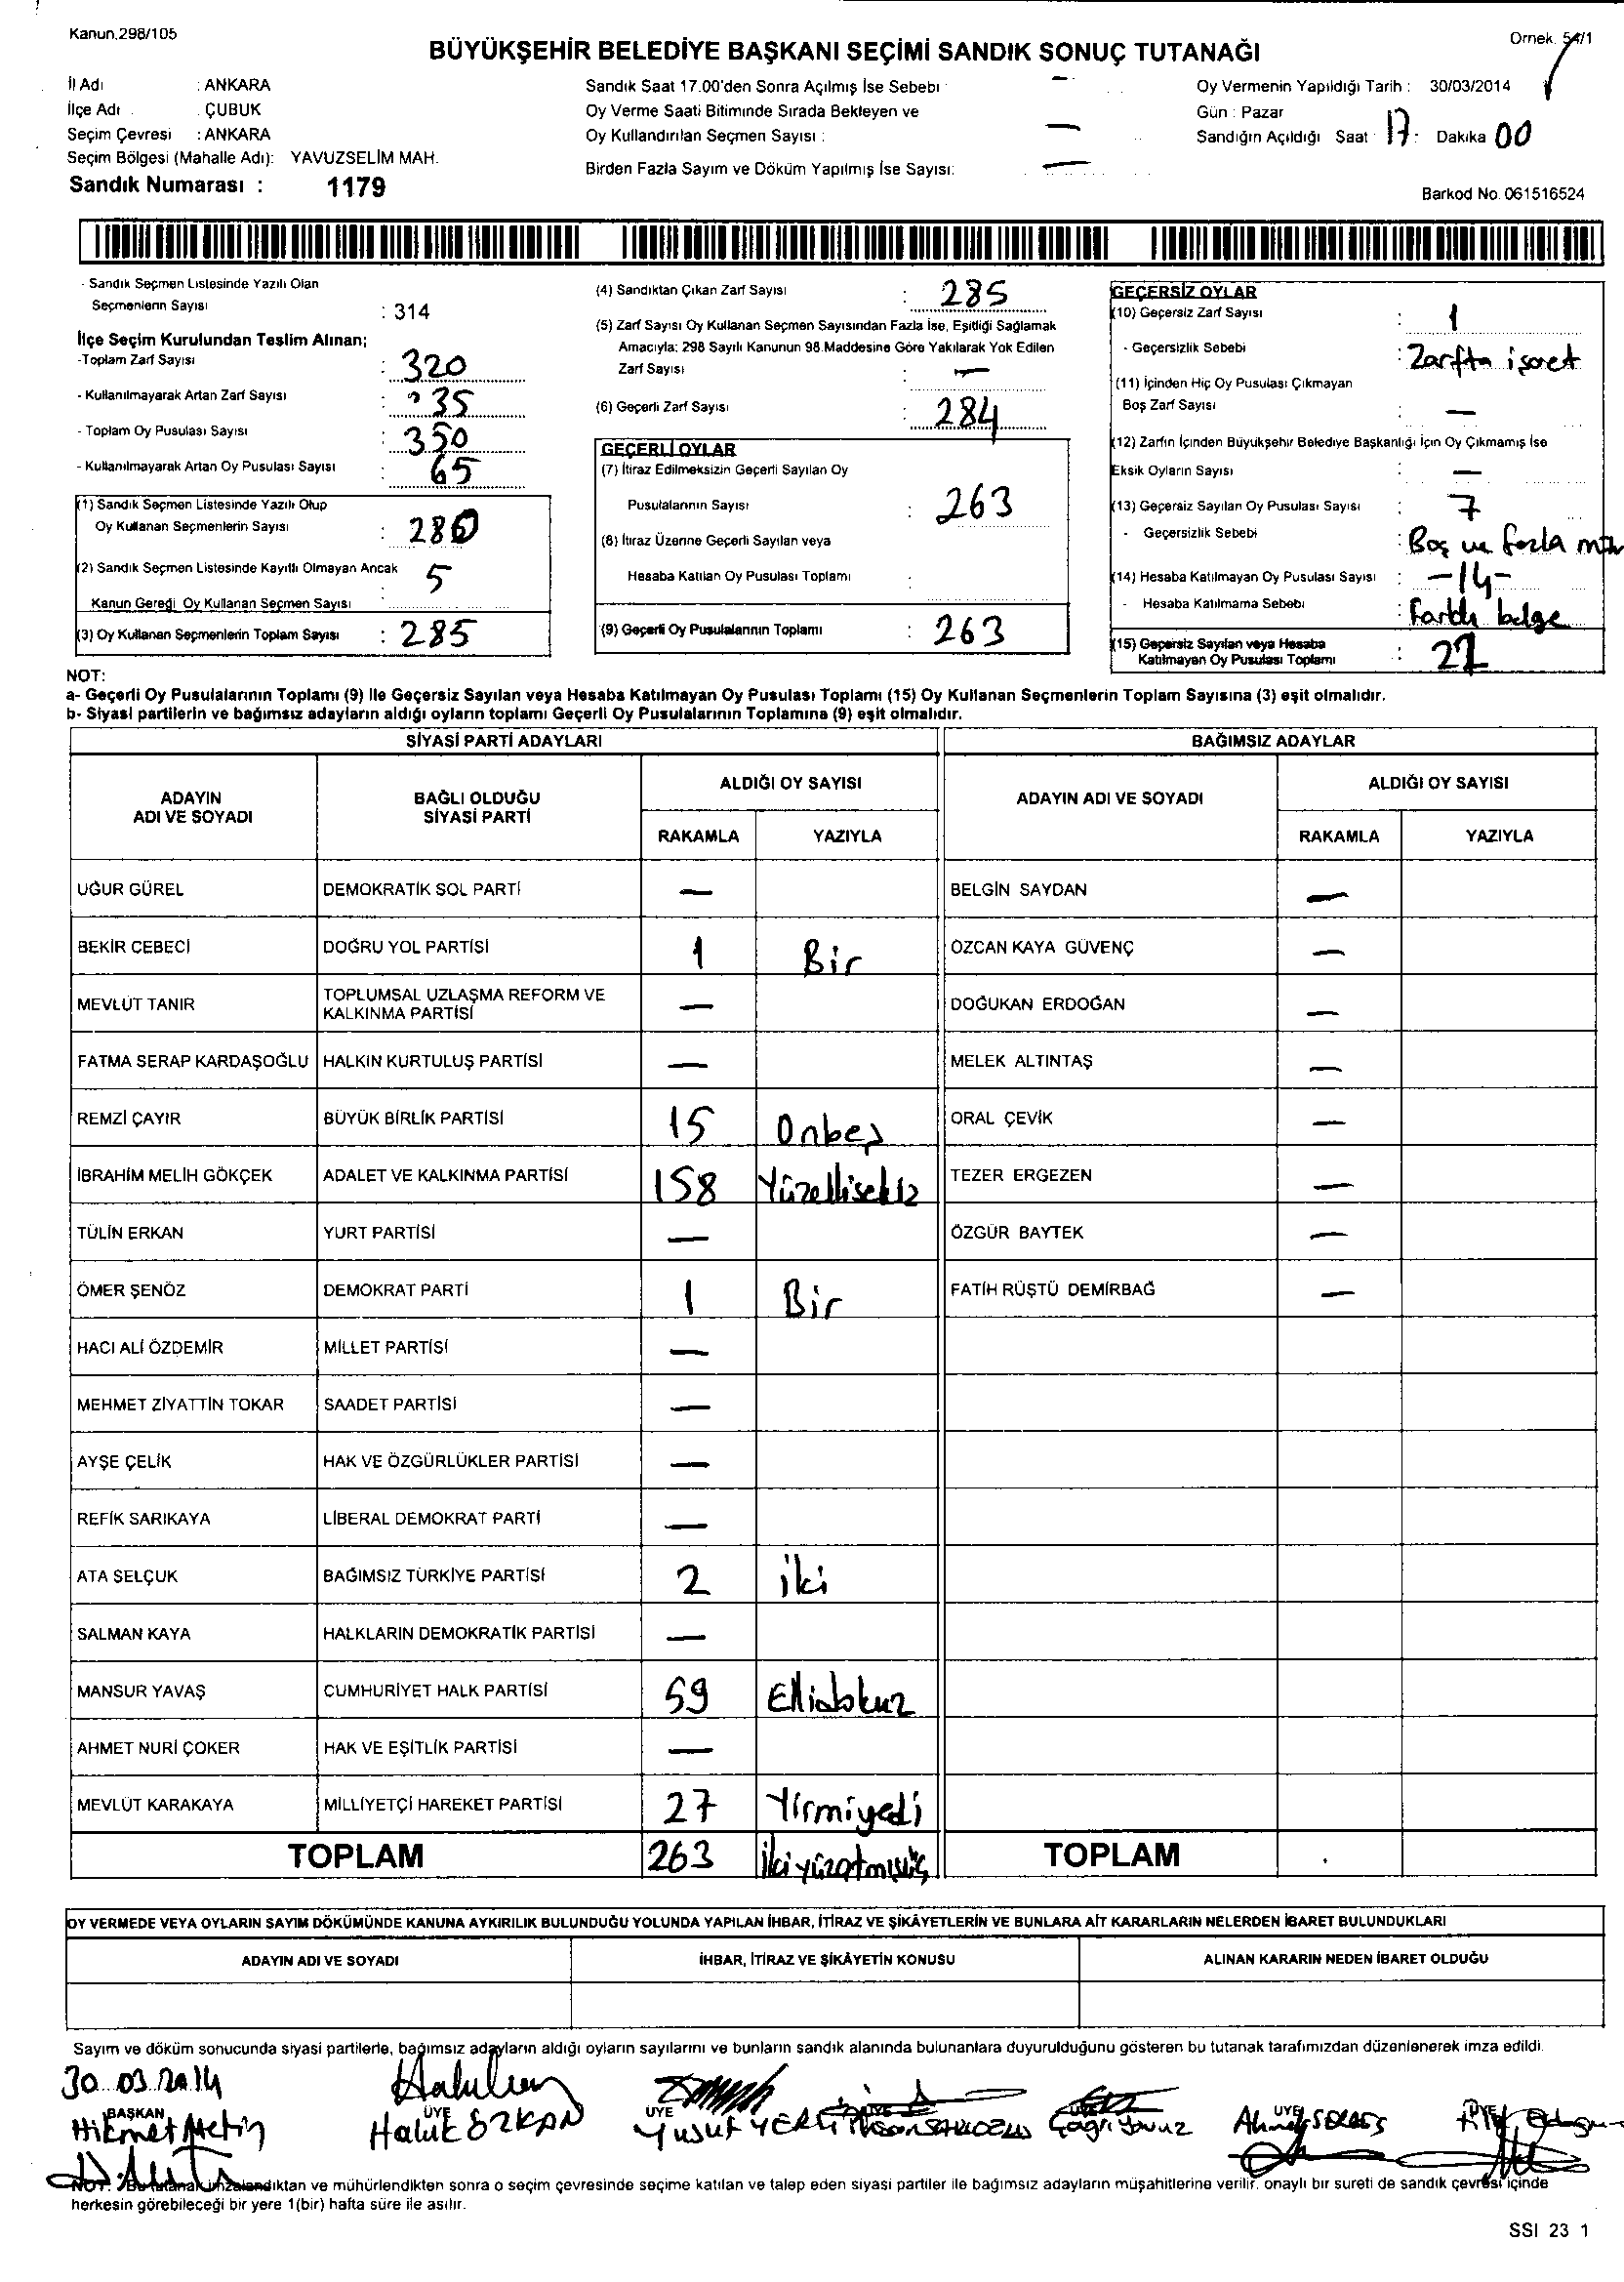 Kanun.298/105
Örnek. 54/1
BÜYÜKŞEHİR BELEDİYE BAŞKANI SEÇİMİ SANDIK SONUÇ TUTANAĞI
İl Adı : ANKARA
İlçe Adı : ÇUBUK
Seçim Çevresi : ANKARA
Seçim Bölgesi (Mahalle Adı): YAVUZSELİM MAH.
Sandık Numarası : 1179
Sandık Saat 17.00'den Sonra Açılmış İse Sebebi : —
Oy Verme Saati Bitiminde Sırada Bekleyen ve
Oy Kullandırılan Seçmen Sayısı : —
Birden Fazla Sayım ve Döküm Yapılmış İse Sayısı: —
Oy Vermenin Yapıldığı Tarih : 30/03/2014
Gün : Pazar
Sandığın Açıldığı Saat : 17 : Dakika 00
Barkod No. 061516524
- Sandık Seçmen Listesinde Yazılı Olan
Seçmenlerin Sayısı : 314
İlçe Seçim Kurulundan Teslim Alınan;
-Toplam Zarf Sayısı : 320
- Kullanılmayarak Artan Zarf Sayısı : 35
- Toplam Oy Pusulası Sayısı : 350
- Kullanılmayarak Artan Oy Pusulası Sayısı : 65
(1) Sandık Seçmen Listesinde Yazılı Olup
Oy Kullanan Seçmenlerin Sayısı : 280
(2) Sandık Seçmen Listesinde Kayıtlı Olmayan Ancak
Kanun Gereği Oy Kullanan Seçmen Sayısı : 5
(3) Oy Kullanan Seçmenlerin Toplam Sayısı : 285
(4) Sandıktan Çıkan Zarf Sayısı : 285
(5) Zarf Sayısı Oy Kullanan Seçmen Sayısından Fazla İse, Eşitliği Sağlamak
Amacıyla: 298 Sayılı Kanunun 98.Maddesine Göre Yakılarak Yok Edilen
Zarf Sayısı : —
(6) Geçerli Zarf Sayısı : 284
GEÇERLİ OYLAR
(7) İtiraz Edilmeksizin Geçerli Sayılan Oy
Pusulalarının Sayısı : 263
(8) İtiraz Üzerine Geçerli Sayılan veya
Hesaba Katılan Oy Pusulası Toplamı :
(9) Geçerli Oy Pusulalarının Toplamı : 263
GEÇERSİZ OYLAR
(10) Geçersiz Zarf Sayısı : 1
- Geçersizlik Sebebi : Zarfta işaret
(11) İçinden Hiç Oy Pusulası Çıkmayan
Boş Zarf Sayısı : —
(12) Zarfın İçinden Büyükşehir Belediye Başkanlığı İçin Oy Çıkmamış İse
Eksik Oyların Sayısı : —
(13) Geçersiz Sayılan Oy Pusulası Sayısı : 7
- Geçersizlik Sebebi : Boş ve fazla
(14) Hesaba Katılmayan Oy Pusulası Sayısı : -14-
- Hesaba Katılmama Sebebi : Farklı belge
(15) Geçersiz Sayılan veya Hesaba
Katılmayan Oy Pusulası Toplamı :
NOT:
a- Geçerli Oy Pusulalarının Toplamı (9) ile Geçersiz Sayılan veya Hesaba Katılmayan Oy Pusulası Toplamı (15) Oy Kullanan Seçmenlerin Toplam Sayısına (3) eşit olmalıdır.
b- Siyasi partilerin ve bağımsız adayların aldığı oyların toplamı Geçerli Oy Pusulalarının Toplamına (9) eşit olmalıdır.
SİYASİ PARTİ ADAYLARI BAĞIMSIZ ADAYLAR
ADAYIN ADI VE SOYADI BAĞLI OLDUĞU SİYASİ PARTİ ALDIĞI OY SAYISI ADAYIN ADI VE SOYADI ALDIĞI OY SAYISI
RAKAMLA YAZIYLA RAKAMLA YAZIYLA
UĞUR GÜREL DEMOKRATİK SOL PARTİ — BELGİN SAYDAN —
BEKİR CEBECİ DOĞRU YOL PARTİSİ 1 Bir ÖZCAN KAYA GÜVENÇ —
MEVLÜT TANIR TOPLUMSAL UZLAŞMA REFORM VE KALKINMA PARTİSİ — DOĞUKAN ERDOĞAN —
FATMA SERAP KARDAŞOĞLU HALKIN KURTULUŞ PARTİSİ — MELEK ALTINTAŞ —
REMZİ ÇAYIR BÜYÜK BİRLİK PARTİSİ 15 Onbeş ORAL ÇEVİK —
İBRAHİM MELİH GÖKÇEK ADALET VE KALKINMA PARTİSİ 158 Yüzellisekiz TEZER ERGEZEN —
TÜLİN ERKAN YURT PARTİSİ — ÖZGÜR BAYTEK —
ÖMER ŞENÖZ DEMOKRAT PARTİ 1 Bir FATİH RÜŞTÜ DEMİRBAĞ —
HACI ALİ ÖZDEMİR MİLLET PARTİSİ —
MEHMET ZİYATTİN TOKAR SAADET PARTİSİ —
AYŞE ÇELİK HAK VE ÖZGÜRLÜKLER PARTİSİ —
REFİK SARIKAYA LİBERAL DEMOKRAT PARTİ —
ATA SELÇUK BAĞIMSIZ TÜRKİYE PARTİSİ 2 iki
SALMAN KAYA HALKLARIN DEMOKRATİK PARTİSİ —
MANSUR YAVAŞ CUMHURİYET HALK PARTİSİ 59 Ellidokuz
AHMET NURİ ÇOKER HAK VE EŞİTLİK PARTİSİ —
MEVLÜT KARAKAYA MİLLİYETÇİ HAREKET PARTİSİ 27 Yirmiyedi
TOPLAM 263 İkiyüzatmışüç TOPLAM .
OY VERMEDE VEYA OYLARIN SAYIM DÖKÜMÜNDE KANUNA AYKIRILIK BULUNDUĞU YOLUNDA YAPILAN İHBAR, İTİRAZ VE ŞİKÂYETLERİN VE BUNLARA AİT KARARLARIN NELERDEN İBARET BULUNDUKLARI
ADAYIN ADI VE SOYADI İHBAR, İTİRAZ VE ŞİKÂYETİN KONUSU ALINAN KARARIN NEDEN İBARET OLDUĞU
Sayım ve döküm sonucunda siyasi partilerle, bağımsız adayların aldığı oyların sayılarını ve bunların sandık alanında bulunanlara duyurulduğunu gösteren bu tutanak tarafımızdan düzenlenerek imza edildi.
30.03.2014
BAŞKAN ÜYE ÜYE ÜYE ÜYE ÜYE ÜYE
Hikmet Metin Haluk ÖZKAN Yusuf YERLİ Çağrı Yavuz Ahmet
NOT: Bu tutanak imzalandıktan ve mühürlendikten sonra o seçim çevresinde seçime katılan ve talep eden siyasi partiler ile bağımsız adayların müşahitlerine verilir, onaylı bir sureti de sandık çevresi içinde
herkesin görebileceği bir yere 1(bir) hafta süre ile asılır.
SSI 23 1